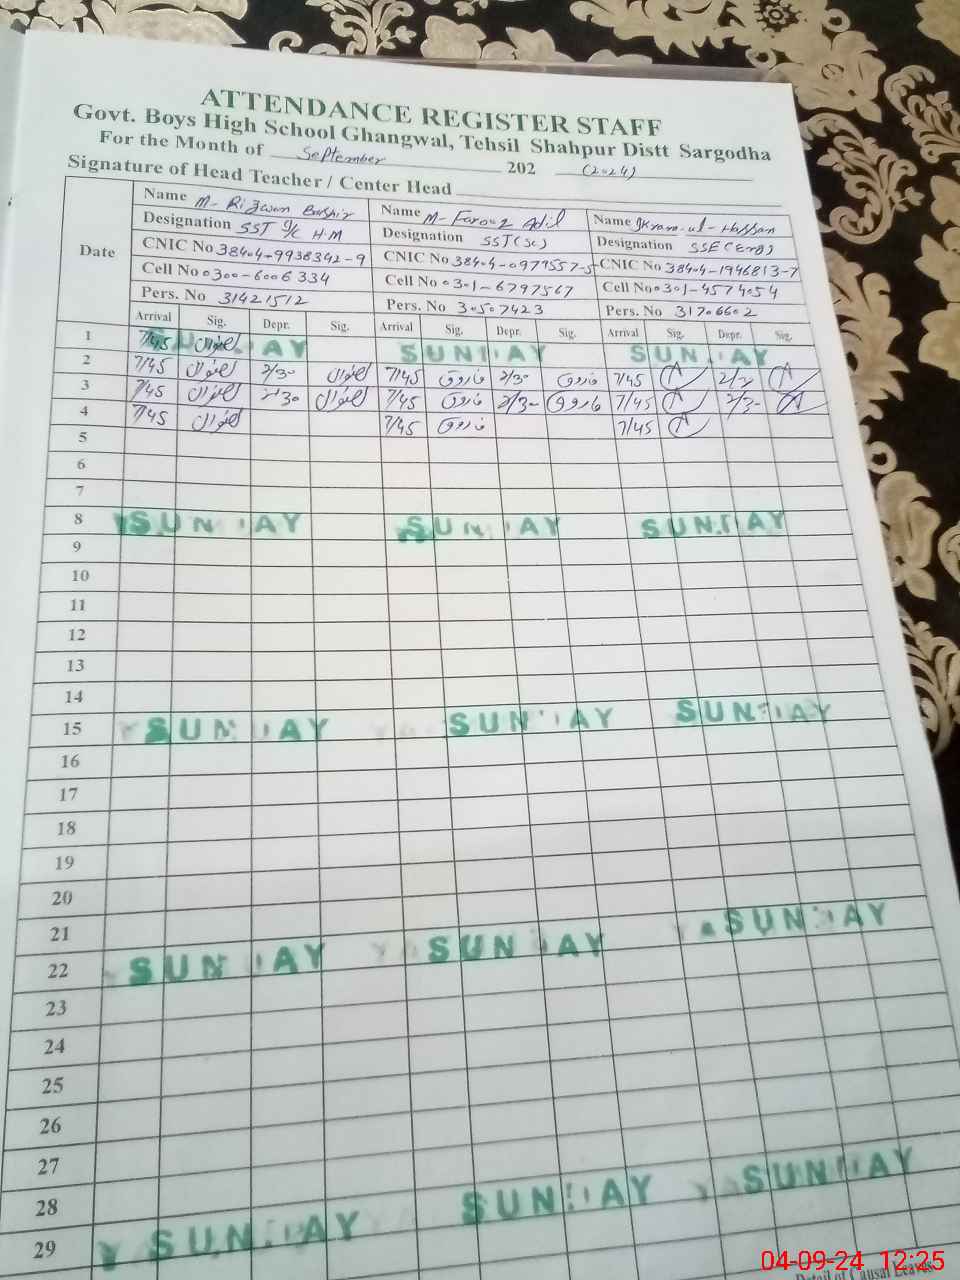 ATTENDANCE REGISTER STAFF
Govt. Boys High School Ghangwal, Tehsil Shahpur Distt Sargodha
For the Month of September 202 (2024)
Signature of Head Teacher / Center Head
Date
Name M- Rizwan Bashir Name M- Farooz Adil Name Ikram-ul-Hassan
Designation SST I/C H.M Designation SST(Sc) Designation SSE(Eng)
CNIC No 38404-9938342-9 CNIC No 38404-0979557-5 CNIC No 38404-1946813-7
Cell No 0300-6006334 Cell No 0301-6797567 Cell No 0301-4574054
Pers. No 31421512 Pers. No 30507423 Pers. No 31706602
Arrival Sig. Depr. Sig. Arrival Sig. Depr. Sig. Arrival Sig. Depr. Sig.
1 7/45 SUNDAY SUNDAY SUNDAY
2 7/45 2/30 7/45 فاروق 2/30 فاروق 7/45 2/30
3 7/45 2/30 7/45 فاروق 2/30 فاروق 7/45 2/30
4 7/45 7/45 فاروق 7/45
5
6
7
8 SUNDAY SUNDAY SUNDAY
9
10
11
12
13
14
15 SUNDAY SUNDAY SUNDAY
16
17
18
19
20
21
22 SUNDAY SUNDAY SUNDAY
23
24
25
26
27
28
29 SUNDAY SUNDAY SUNDAY
Detail of Causal Leaves
04-09-24 12:25